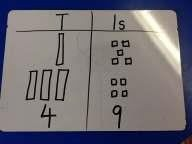 T 1s
4 9